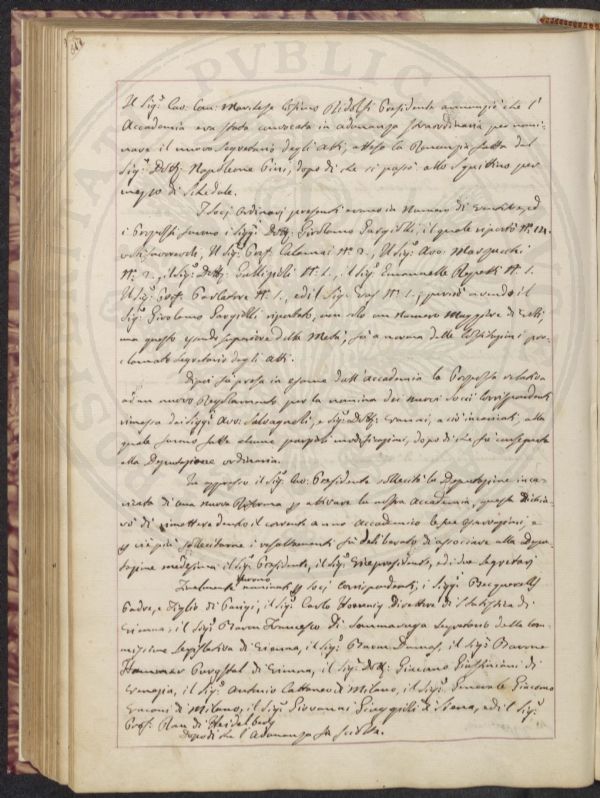 Il Sig.r Cav. Com. Marchese Cosimo Ridolfi Presidente annunziò che l'
Accademia era stata convocata in adunanza straordinaria per nomi-
nare il nuovo Segretario degli Atti, attesa la Renunzia fatta dal
Sig.r Dott. Napoleone Pini, dopo di che si passò allo Squittino per
mezzo di Schede.
I Socj Ordinarj presenti erano in Numero di
i furono i Sigg.i Dott. Girolamo Gargiolli, il quale riportò N.o
voti favorevoli, Il Sig.r Prof. Calamai N.o 2., Il Sig.r Avv.
N.o 2., il Sig.r Dott. Gallizioli N.o 1., il Sig. Emanuelle Repetti N.o 1.
Il Sig.r Prof. Parlatore N.o 1., ed il Sig. N.o 1.; perciò avendo il
Sig.r Girolamo Gargiolli riportato, non solo un numero Maggiore di voti,
ma questo essendo superiore della Metà, fù a norma delle Costituzioni pro-
clamato Segretario degli Atti.
Dipoi fù presa in esame dall'Accademia la Proposta relativa
ad un nuovo Regolamento per la nomina dei nuovi Socii Corrispondenti
rimessa dai Sigg.i Avv. Salvagnoli, e Sig.r Dott. a ciò incaricati, alla
quale furono fatte alcune modificazioni, dopo di che fù consegnata
alla Deputazione ordinaria.
In appresso il Sig.r Cav. Presidente sollecitò la Deputazione inca-
ricata di una nuova Riforma p attivare la nostra Accademia, questa dichia-
rò di rimettere dentro il corrente anno Accademico le sue osservazioni, e
p ciò più sollecitarne i resultamenti fù deliberato di associare alla Depu-
tazione medesima il Sig.r Presidente, il Sig.r Vicepresidente, ed i due Segretarj
Finalmente furono nominati p Socj Corrispondenti, i Sigg.i Becquerell
Padre, e Figlio di Parigi, il Sig.r Carlo Hoernig Direttore di Statistica di
Vienna, il Sig.r Baron Francesco Di Sommaruga Segretario della Com-
missione Legislativa di Vienna, il Sig.r Baron Dumas, il Sig.r Barone
Hammer Purgstal di Vienna, il Sig.r Dott. Giacomo Giustiniani di
Venezia, il Sig.r Antonio Cattaneo di Milano, il Sig.r Generale Giacomo
Vaccani di Milano, il Sig.r Giovanni di Siena, ed il Sig.r
Prof. Rau di Heidelberg
Dopo di che l'Adunanza fù sciolta.